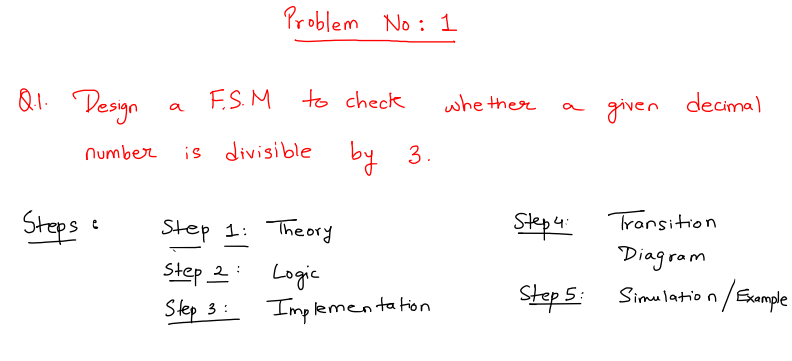 Problem No: 1
Q.1. Design a F.S.M to check whether a given decimal
number is divisible by 3.
Steps:
Step 1: Theory
Step 2: Logic
Step 3: Implementation
Step 4: Transition
Diagram
Step 5: Simulation/Example